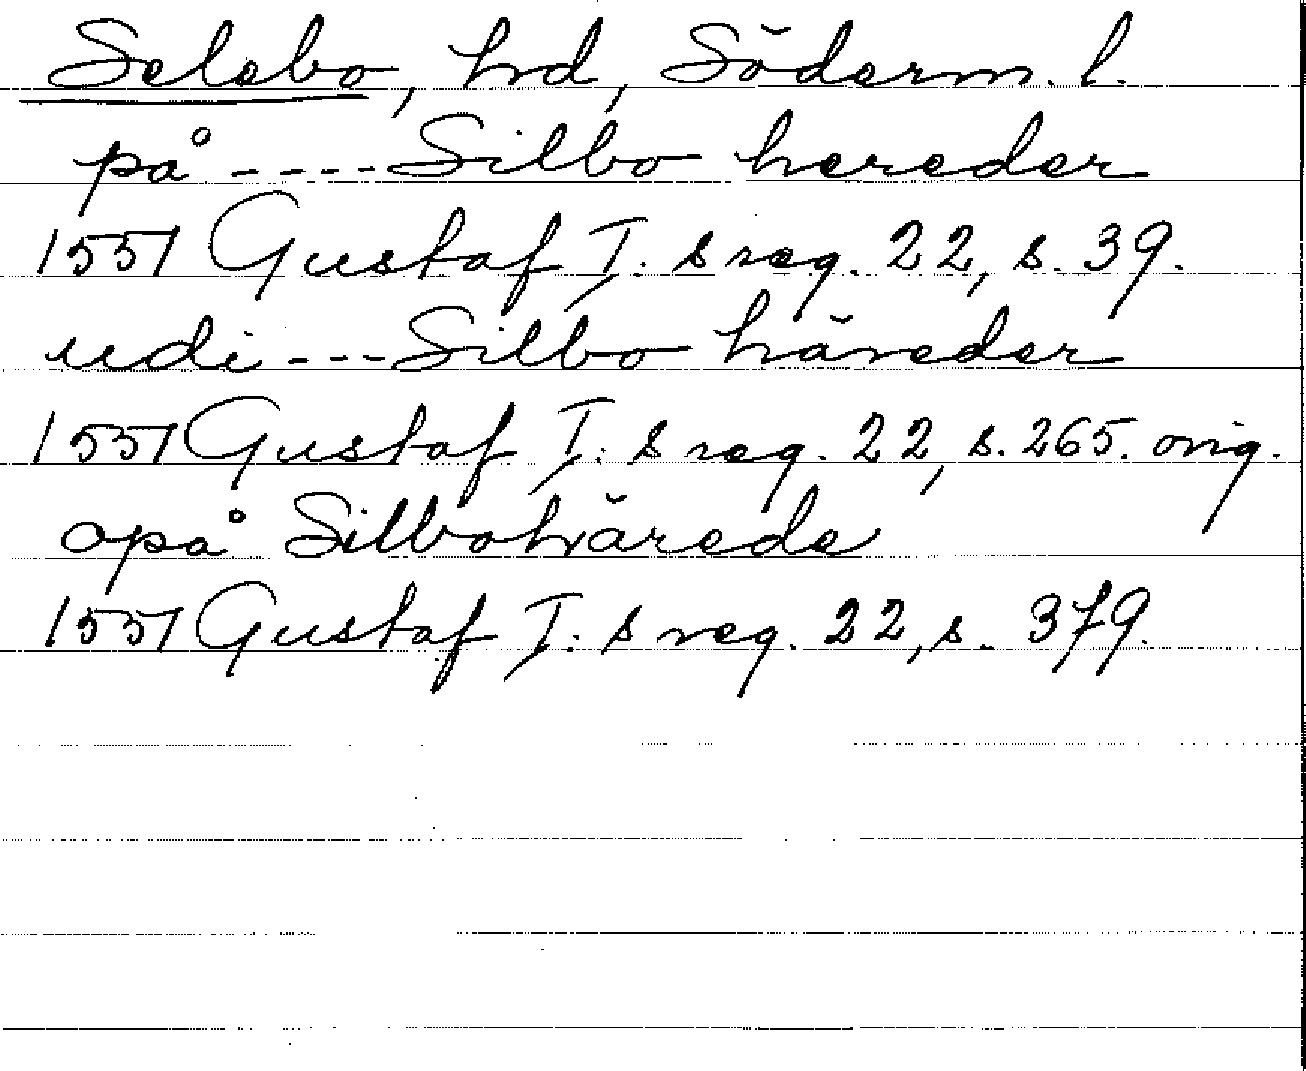 Selebo, hd, Söderm. l.
på ---- Silbo hereder
1551 Gustaf I. s reg. 22, s. 39.
udi --- Silbo häreder
1551 Gustaf I. s reg. 22, s. 265. orig.
opå Silbohärede
1551 Gustaf I. s reg. 22, s. 379.